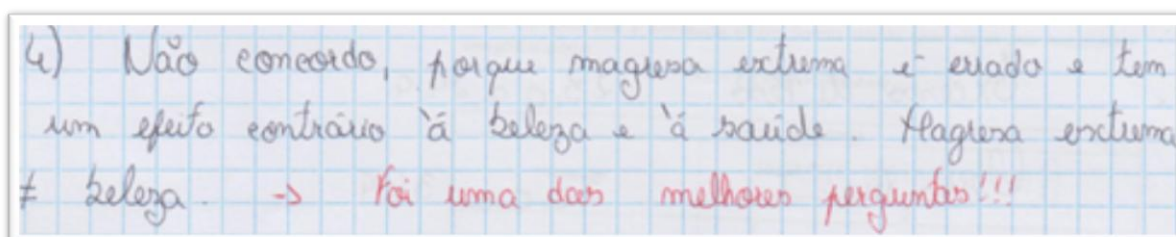 4) Não concordo, porque magresa extrema é errado e tem
um efeito contrário à beleza e à saúde. Magresa extrema
≠ beleza. -> Foi uma das melhores perguntas!!!